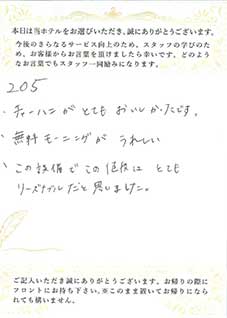 本日は当ホテルをお選びいただき、誠にありがとうございます。
今後のさらなるサービス向上のため、スタッフの学びのため、お客様からお言葉を頂けましたら幸いです。どのようなお言葉でもスタッフ一同励みになります。
205
・チャーハンがとてもおいしかったです。
・無料モーニングがうれしい
・この設備でこの値段はとても
リーズナブルだと思いました。
ご記入いただき誠にありがとうございます。お帰りの際に
フロントにお持ち下さい。※このまま置いてお帰りになら
れても構いません。